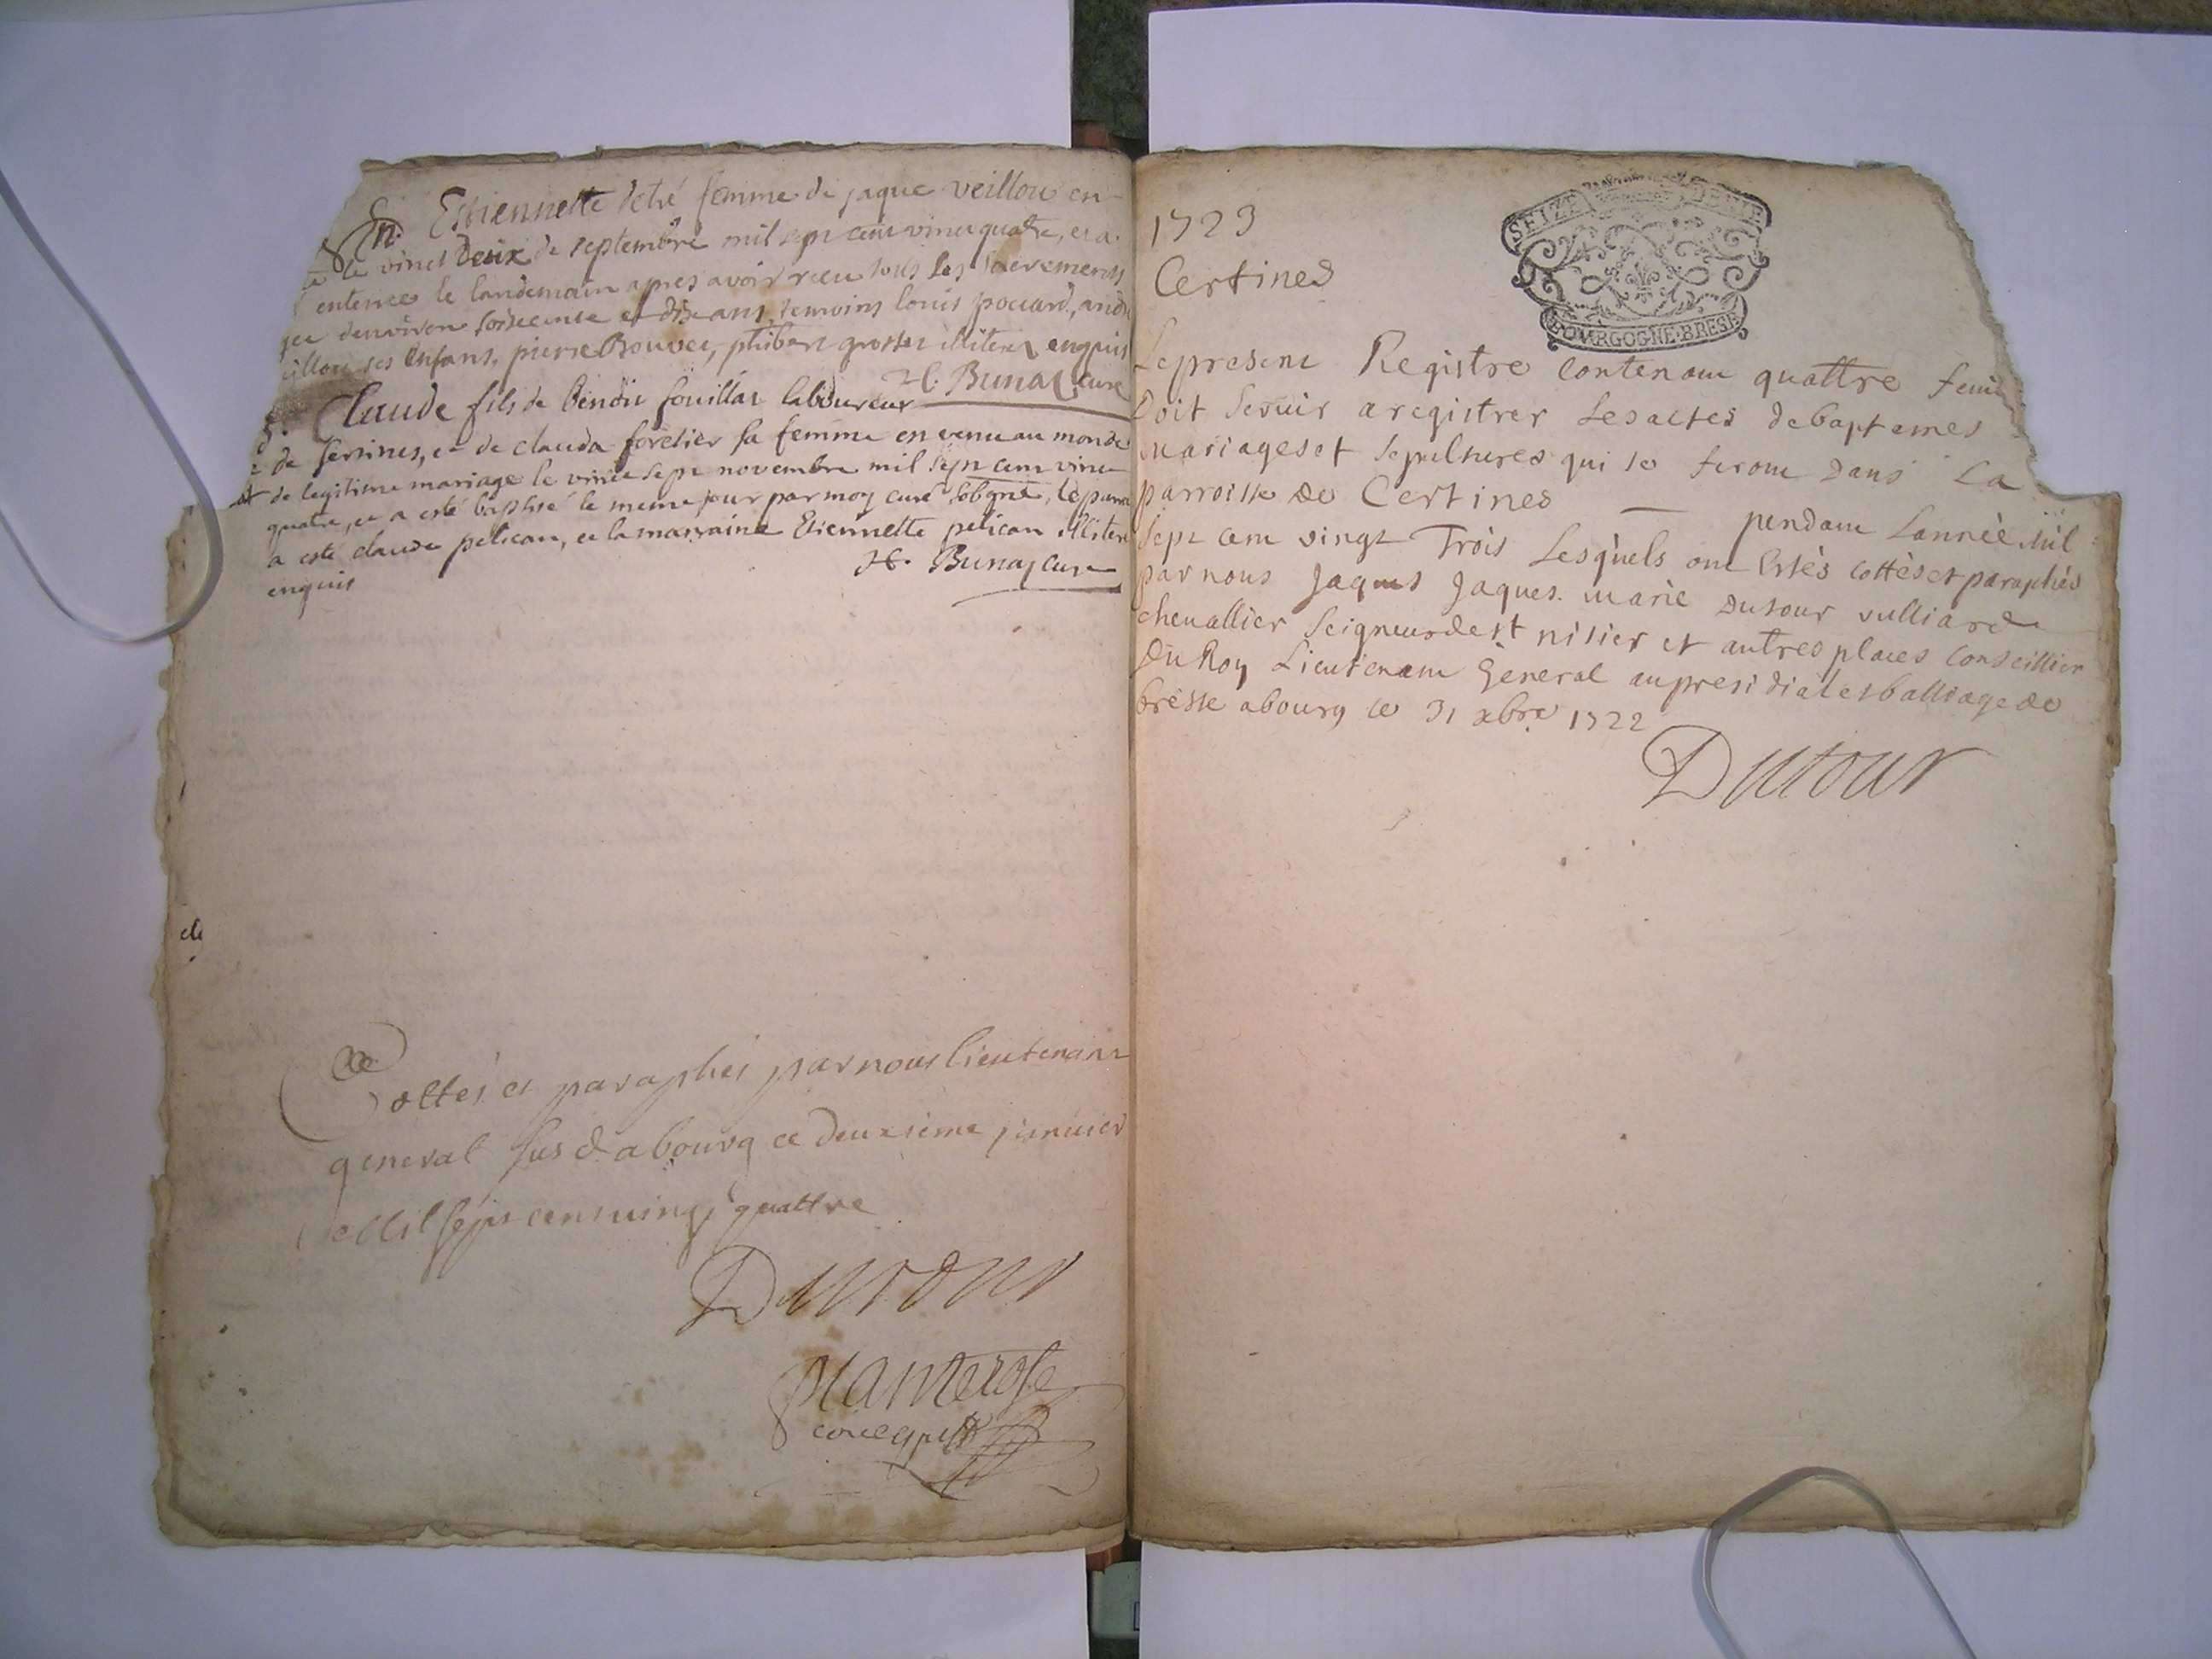 Estiennette detré femme de jaque veillou en-
le vinct deux de septembre mil sept cent vinct quatre, et a
enterrée le landemain apres avoir receu tous les sacrements
denviron soisecente et dix ans, temoins louis pouard, andr
illou ses enfans, pierre Bouver, philibert grosset illiterez enquis
H. Bunaz curé
Claude fils de Benoit fouillar laboureur
de sersines, et de clauda foretier sa femme en venu au monde
et de legitime mariage le vinct sept novembre mil sept cent vinct
quatre, et a esté baptisé le meme jour par moy curé sobsigné, le parra
a esté claude pelican, et la marraine Etiennette pelican illitere
enquis
H. Bunaz curé
de
Cottés et paraphés par nous lieutenant
general susd a bourg ce deuxieme janvier
Mil sept cent vingt quattre
Dutour
1723
Certines
SEIZE DENIE
BOURGOGNE·BRESE
Le present Registre contenant quattre feuil
Doit servir a registrer les actes de baptemes
mariages et sepultures qui se feront dans La
parroisse de Certines pendant Lannèe Mil
sept cent vingt Trois Lesquels ont Estès cottès et paraphès
par nous Jaques Jaques Marie Dutour vulliard
chevallier seigneur de st nisier et autres places conseillier
Du Roy Lieutenant General au presidial et balliage de
bresse a bourg ce 31 xbre 1722
Dutour